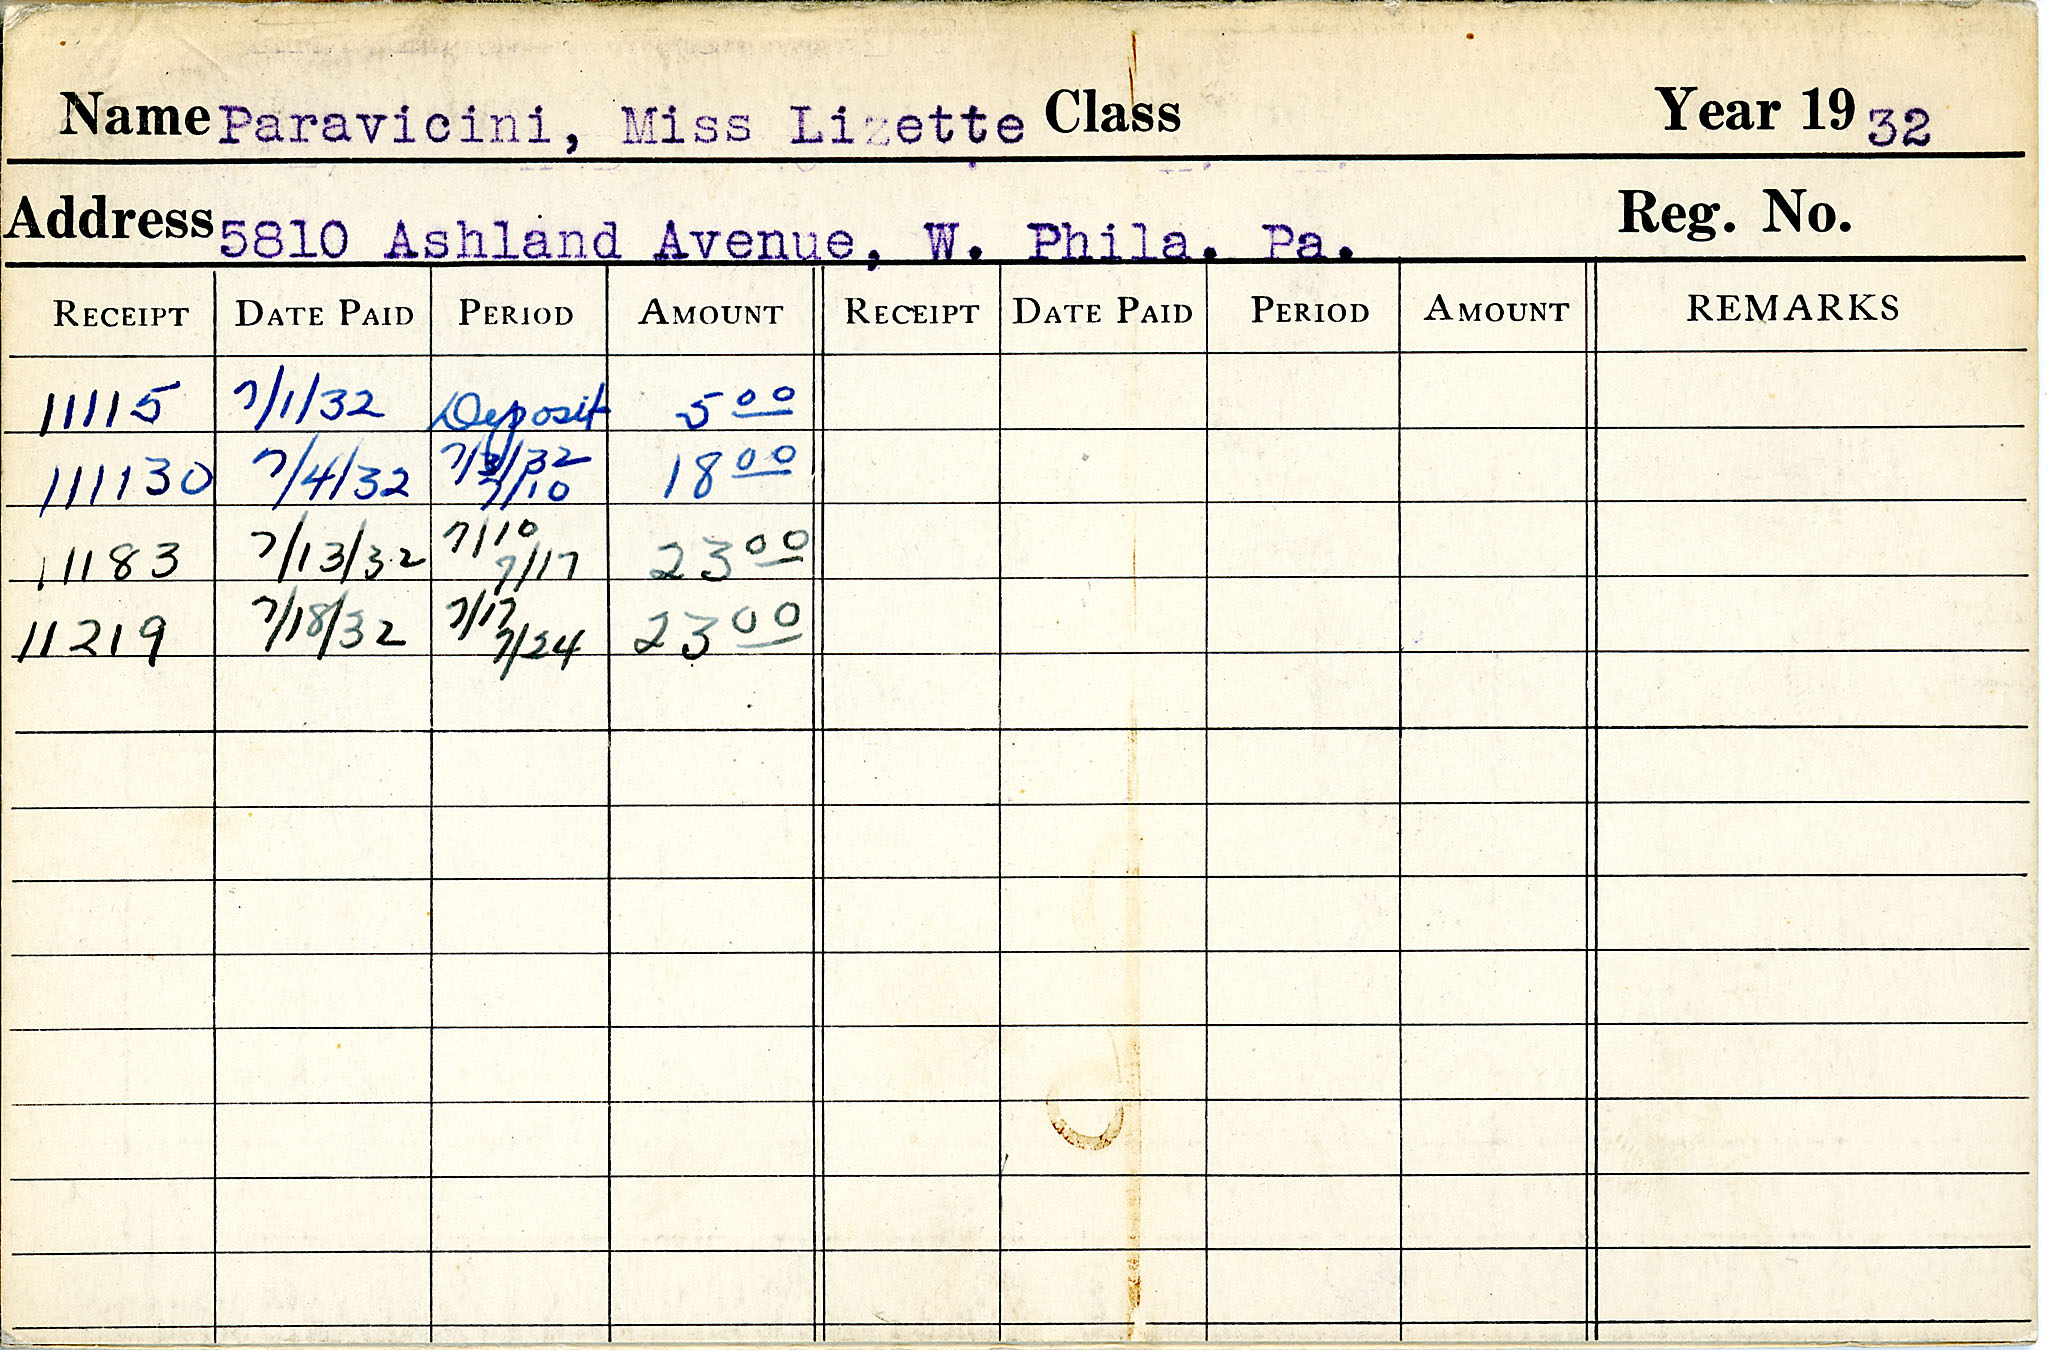 Name Paravicini, Miss Lizette Class Year 19 32
Address 5810 Ashland Avenue, W. Phila. Pa. Reg. No.
RECEIPT DATE PAID PERIOD AMOUNT RECEIPT DATE PAID PERIOD AMOUNT REMARKS
11115 7/1/32 Deposit 5 00
111130 7/4/32 7/3/32 7/10 18 00
11183 7/13/32 7/10 7/17 23 00
11219 7/18/32 7/17 7/24 23 00